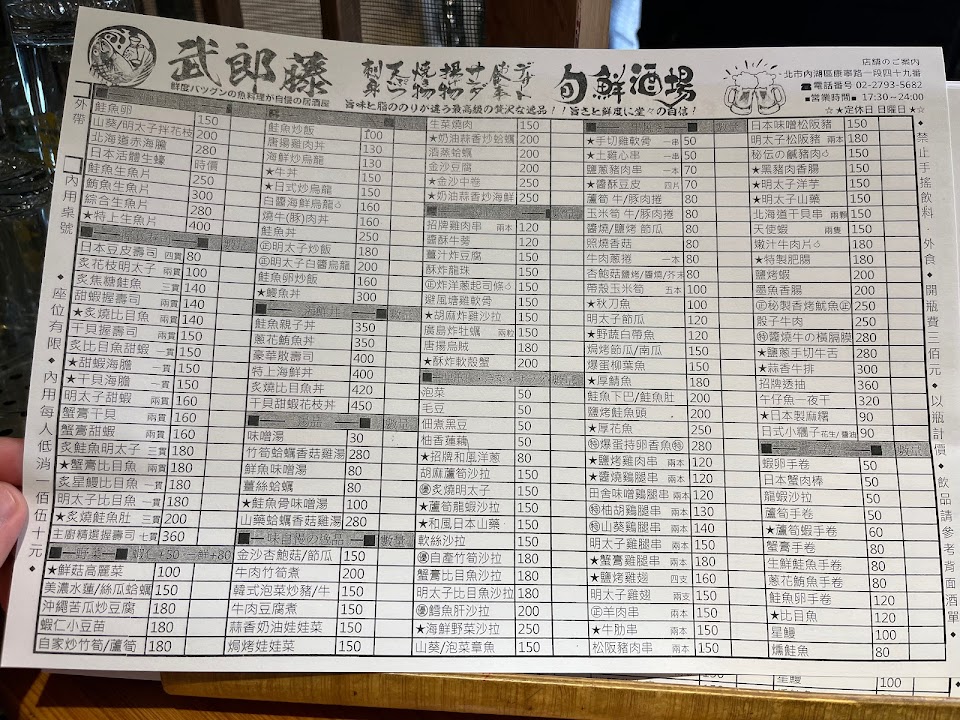 武郎藤
鮮度バツグンの魚料理が自慢の居酒屋
刺身 天ぷら 焼物 揚物 サラダ 食事 デザート
旨味と脂ののりが違う最高級の贅沢な逸品!!旨さと鮮度に堂々の自信!
旬鮮酒場
店舗のご案内
北市內湖區康寧路一段四十九番
☎電話番号 02-2793-5682
■営業時間■ 17:30~24:00
☆★定休日 日曜日★☆
外帶
內用桌號
◆座位有限◆內用每人低消 佰伍十元◆
鮭魚卵 150
山葵/明太子拌花枝 200
北海道赤海膽 280
日本活體生蠔 時價
鮭魚生魚片 250
鮪魚生魚片 300
綜合生魚片 280
★特上生魚片 400
日本豆皮壽司 四貫 80
炙花枝明太子 兩貫 100
炙焦糖鮭魚 三貫 140
甜蝦握壽司 兩貫 140
★炙燒比目魚 兩貫 140
干貝握壽司 兩貫 150
炙比目魚甜蝦 一貫 150
★甜蝦海膽 一貫 150
★干貝海膽 一貫 150
明太子甜蝦 兩貫 160
蟹膏干貝 兩貫 160
蟹膏甜蝦 兩貫 160
炙鮭魚明太子 三貫 180
★蟹膏比目魚 兩貫 180
炙星鰻比目魚 一貫 180
明太子比目魚 一貫 180
★炙燒鮭魚肚 三貫 200
主廚精選握壽司 七貫 360
野菜 蝦仁+50 三鮮+80
★鮮菇高麗菜 100
美濃水蓮/絲瓜蛤蠣 150
沖繩苦瓜炒豆腐 180
蝦仁小豆苗 180
自家炒竹筍/蘆筍 180
鮭魚炒飯 100
唐揚雞肉丼 130
海鮮炒烏龍 130
★牛丼 150
★日式炒烏龍 150
白醬海鮮烏龍 160
燒牛(豚)肉丼 160
鮭魚丼 250
㊣明太子炒飯 180
㊣明太子白醬烏龍 200
鮭魚卵炒飯 160
★鰻魚丼 300
海鮮丼 數量
鮭魚親子丼 350
蔥花鮪魚丼 350
豪華散壽司 400
特上海鮮丼 400
炙燒比目魚丼 420
干貝甜蝦花枝丼 450
湯品 數量
味噌湯 30
竹筍蛤蠣香菇雞湯 280
鮮魚味噌湯 80
薑絲蛤蠣 80
★鮭魚骨味噌湯 100
山藥蛤蠣香菇雞湯 280
味自慢の逸品 數量
金沙杏鮑菇/節瓜 150
牛肉竹筍煮 200
韓式泡菜炒豬/牛 150
牛肉豆腐煮 150
蒜香奶油娃娃菜 150
焗烤娃娃菜 150
生菜燒肉 150
★奶油蒜香炒蛤蠣 200
酒蒸蛤蠣 200
金沙豆腐 200
★金沙中卷 250
★奶油蒜香炒海鮮 250
招牌雞肉串 兩本 120
醬酥牛蒡 120
薑汁炸豆腐 150
酥炸龍珠 150
㊣炸洋蔥起司條 150
避風塘雞軟骨 150
★胡麻炸雞沙拉 150
廣島炸牡蠣 兩粒 150
唐揚烏賊 180
★酥炸軟殼蟹 200
泡菜 50
毛豆 50
佃煮黑豆 50
柚香蓮藕 50
★招牌和風洋蔥 80
胡麻蘆筍沙拉 150
炙燒明太子 150
★蘆筍龍蝦沙拉 150
★和風日本山藥 150
軟絲沙拉 150
自產竹筍沙拉 180
蟹膏比目魚沙拉 180
明太子比目魚沙拉 180
鱈魚肝沙拉 200
★海鮮野菜沙拉 250
山葵/泡菜章魚 150
★手切雞軟骨 一串 50
★土雞心串 一串 50
鹽蔥豬肉串 一本 70
★醬酥豆皮 四片 70
蘆筍 牛/豚肉捲 80
玉米筍 牛/豚肉捲 80
醬燒/鹽烤 節瓜 80
照燒香菇 80
牛肉蔥捲 一本 80
杏鮑菇鹽烤/醬燒/芥末 80
帶殼玉米筍 五本 100
★秋刀魚 100
明太子節瓜 120
★野蔬白帶魚 120
焗烤節瓜/南瓜 150
爆蛋柳葉魚 150
★厚鯖魚 180
鮭魚下巴/鮭魚肚 200
鹽烤鮭魚頭 200
★厚花魚 250
㊕爆蛋持卵香魚㊕ 280
★鹽烤雞肉串 兩本 120
★醬燒雞腿串 兩本 120
田舍味噌雞腿串 兩本 120
㊕柚胡雞腿串 兩本 130
㊕山葵雞腿串 兩本 140
明太子雞串 兩本 150
★蟹膏雞腿串 兩本 160
★鹽烤雞翅 四支 160
明太子雞翅 兩支 150
㊣羊肉串 兩本 150
★牛肋串 兩本 150
松阪豬肉串 兩本 150
日本味噌松阪豬 150
明太子松阪豬 兩本 180
秘伝の鹹豬肉 150
★黑豬肉香腸 150
★明太子洋芋 150
★明太子山藥 150
北海道干貝串 兩顆 150
天使蝦 兩隻 150
嫩汁牛肉片 150
★特製肥腸 180
鹽烤蝦 200
墨魚香腸 200
㊣秘製香烤魷魚㊣ 250
骰子牛肉 250
㊕醬燒牛の橫膈膜 280
★鹽蔥手切牛舌 280
★蒜香牛排 300
招牌透抽 360
午仔魚一夜干 320
★日本製麻糬 90
日式小糰子 花生/醬油 90
蝦卵手卷 50
日本蟹肉棒 50
龍蝦沙拉 50
蘆筍手卷 50
★蘆筍蝦手卷 60
蟹膏手卷 80
生鮮鮭魚手卷 80
蔥花鮪魚手卷 80
鮭魚卵手卷 120
★比目魚 120
星鰻 100
燻鮭魚 80
◆禁止手搖飲料·外食◆開瓶費三佰元◆以瓶計價◆飲品請參考背面酒單◆
星鰻 100